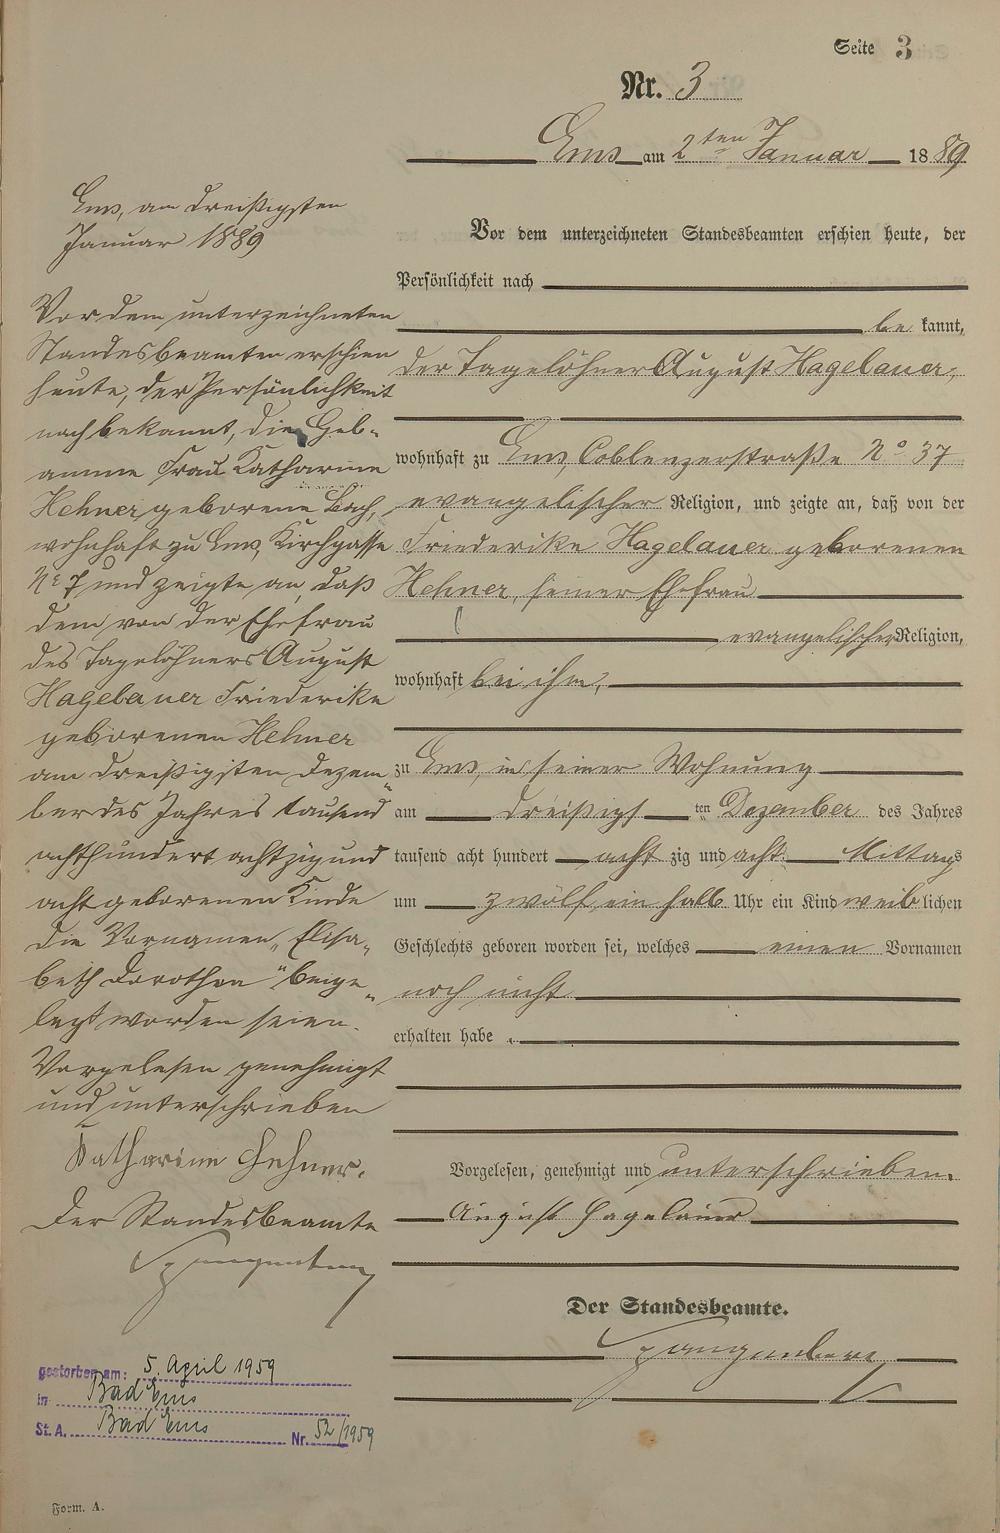 Seite 3
Nr. 3
Ems am 2ten Januar 1889
Vor dem unterzeichneten Standesbeamten erschien heute, der
Persönlichkeit nach
be kannt,
der Tagelöhner August Hagelauer,
wohnhaft zu Ems, Coblenzerstraße No 37
evangelischer Religion, und zeigte an, daß von der
Friederike Hagelauer geborenen
Hehner, seiner Ehefrau
evangelischer Religion,
wohnhaft bei ihm,
zu Ems, in seiner Wohnung
am dreißigsten Dezember des Jahres
tausend acht hundert acht zig und acht Mittags
um zwölf ein halb Uhr ein Kind weiblichen
Geschlechts geboren worden sei, welches einen Vornamen
noch nicht
erhalten habe.
Vorgelesen, genehmigt und unterschrieben.
August Hagelauer
Der Standesbeamte.
Ems, am dreißigsten
Januar 1889
Vor dem unterzeichneten
Standesbeamten erschien
heute, der Persönlichkeit
nach bekannt, die Heb-
amme Frau Katharine
Hehner geborene Bach,
wohnhaft zu Ems, Kirchgasse
No 7 und zeigte an, daß
dem von der Ehefrau
des Tagelöhners August
Hagelauer Friederike
geborenen Hehner
am dreißigsten Dezem-
ber des Jahres tausend
achthundert achtzig und
acht geborenen Kinde
die Vornamen „Elisa-
beth Dorothea" beige-
legt worden seien.
Vorgelesen genehmigt
und unterschrieben
Katharine Hehner.
Der Standesbeamte
gestorben am: 5. April 1959
in Bad Ems
St. A. Bad Ems Nr. 52/1959
Form. A.